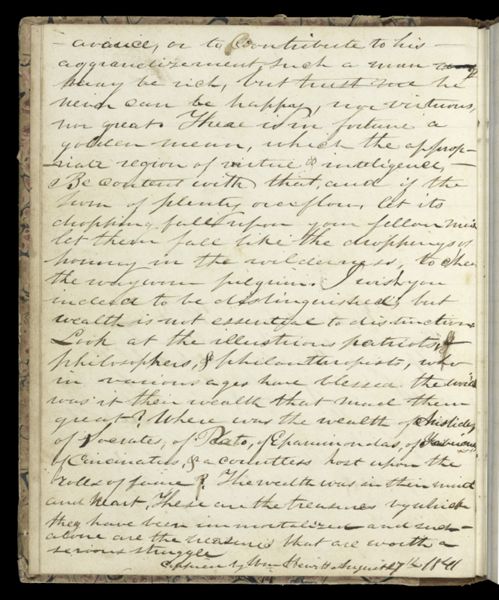 avarice, or to contribute to his
aggrandizement, such a man
may be rich, but trust me he
never can be happy, nor virtuous,
nor great. There is in fortune a
golden mean, which the approp-
riate region of virtue & intelligence,
Be content with that, and if the
horn of plenty overflow, let its
droppings fall upon your fellow men
let them fall like the droppings of
honey in the wilderness, to cheer
the wayworn pilgrim. I wish you
indeed to be distinguished, but
wealth is not essential to distinction
Look at the illustrious patriots, &
philosophers, & philanthropists, who
in various ages have blessed the world
was it their wealth that made them
great? Where was the wealth of Aristides,
of Socrates, of Plato, of Epaminondas, of Fabricius,
of Cincinatus, & a countless host upon the
rolls of fame? The wealth was in their mind
and heart, These are the treasures by which
they have been immortalized and such
alone are the treasures that are worth a
serious struggle
by Wm August 27th 1841